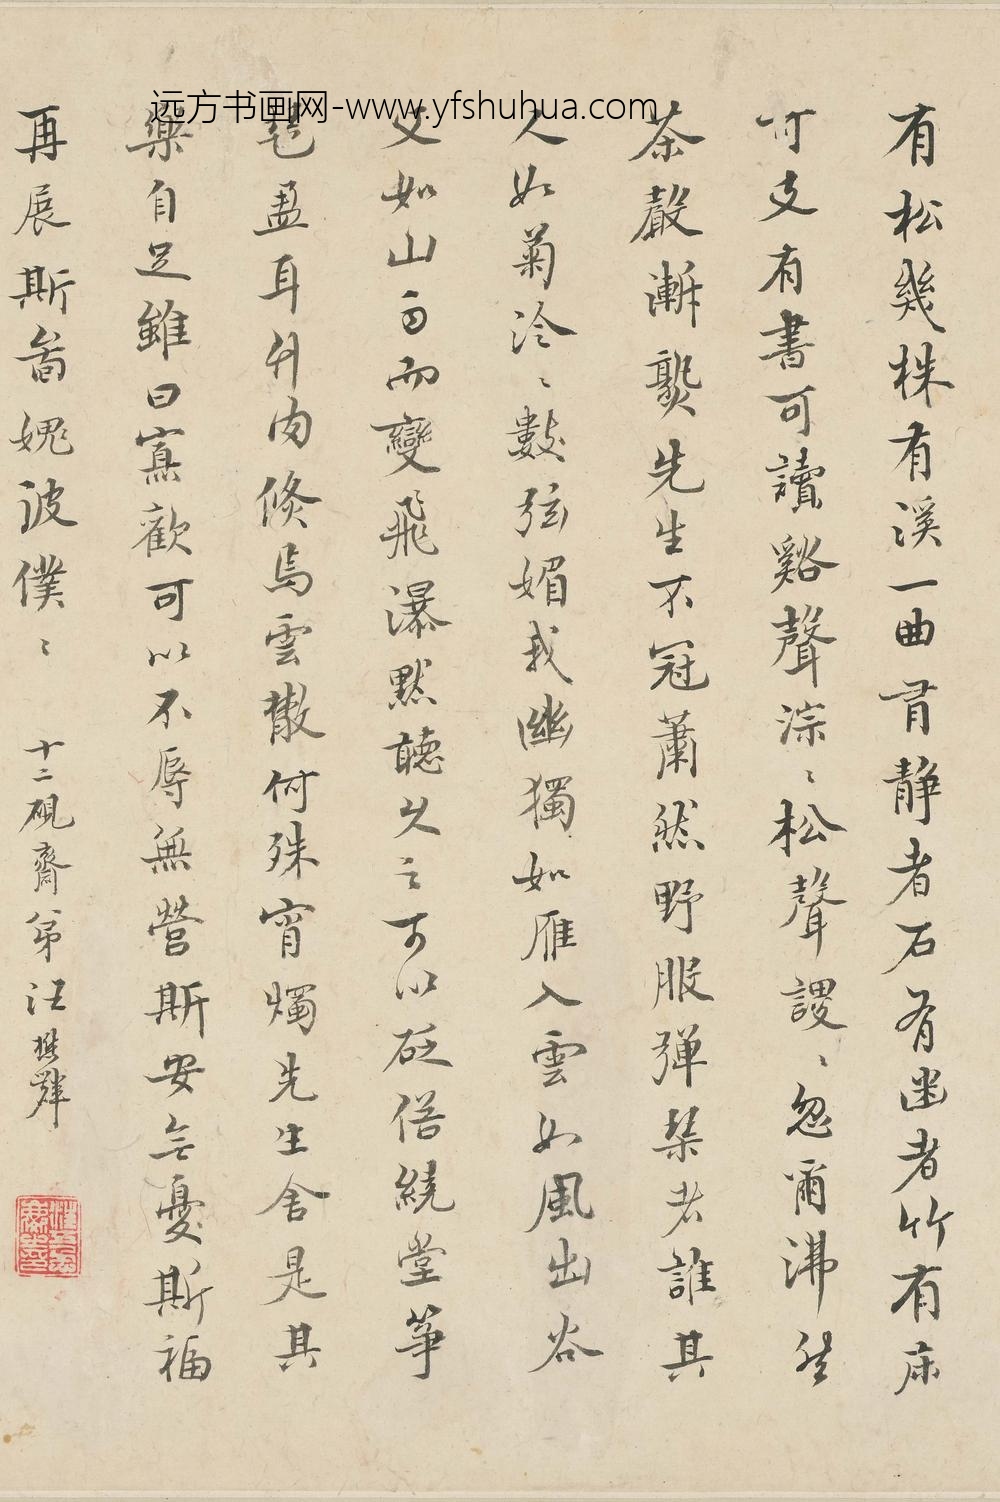 远方书画网-www.yfshuhua.com
有松幾株有溪一曲有静者石有幽者竹有床
可支有書可讀谿聲淙〻松聲謖〻忽爾沸然
茶聲漸爇先生不冠蕭然野服彈琹者誰其
人如菊泠〻數弦媚我幽獨如雁入雲如風出谷
又如山雨而變飛瀑默聽久之可以砭俗繞堂箏
琶盈耳升肉倏焉雲散何殊宵燭先生舍是其
樂自足雖曰寡歡可以不辱無營斯安無憂斯福
再展斯啚媿彼僕〻
十二硯齋弟汪